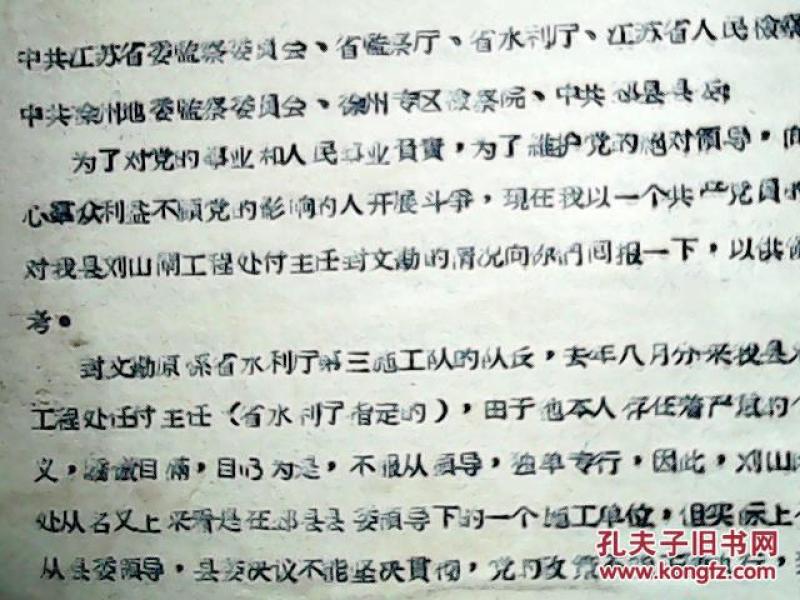 中共江苏省委监察委员会、省监察厅、省水利厅、江苏省人民检察
中共徐州地委监察委员会、徐州专区检察院、中共邳县县委:
为了对党的事业和人民事业负责，为了維护党的絶对領导，向
心羣众利益不顾党的影响的人开展斗爭，現在我以一个共产党員
对我县刘山閘工程处付主任封文勋的情况向你們回报一下，以供
考。
封文勋原係省水利厅第三施工队的队长，去年八月分来我县
工程处任付主任（省水利厅指定的），由于他本人存在着严重的个
义，自滿，自以为是，不服从領导，独单专行，因此，刘山
处从名义上来看是在邳县县委領导下的一个施工单位，但实际上
从县委領导，县委决议不能坚决貫彻，党的政策
孔夫子旧书网
www.kongfz.com